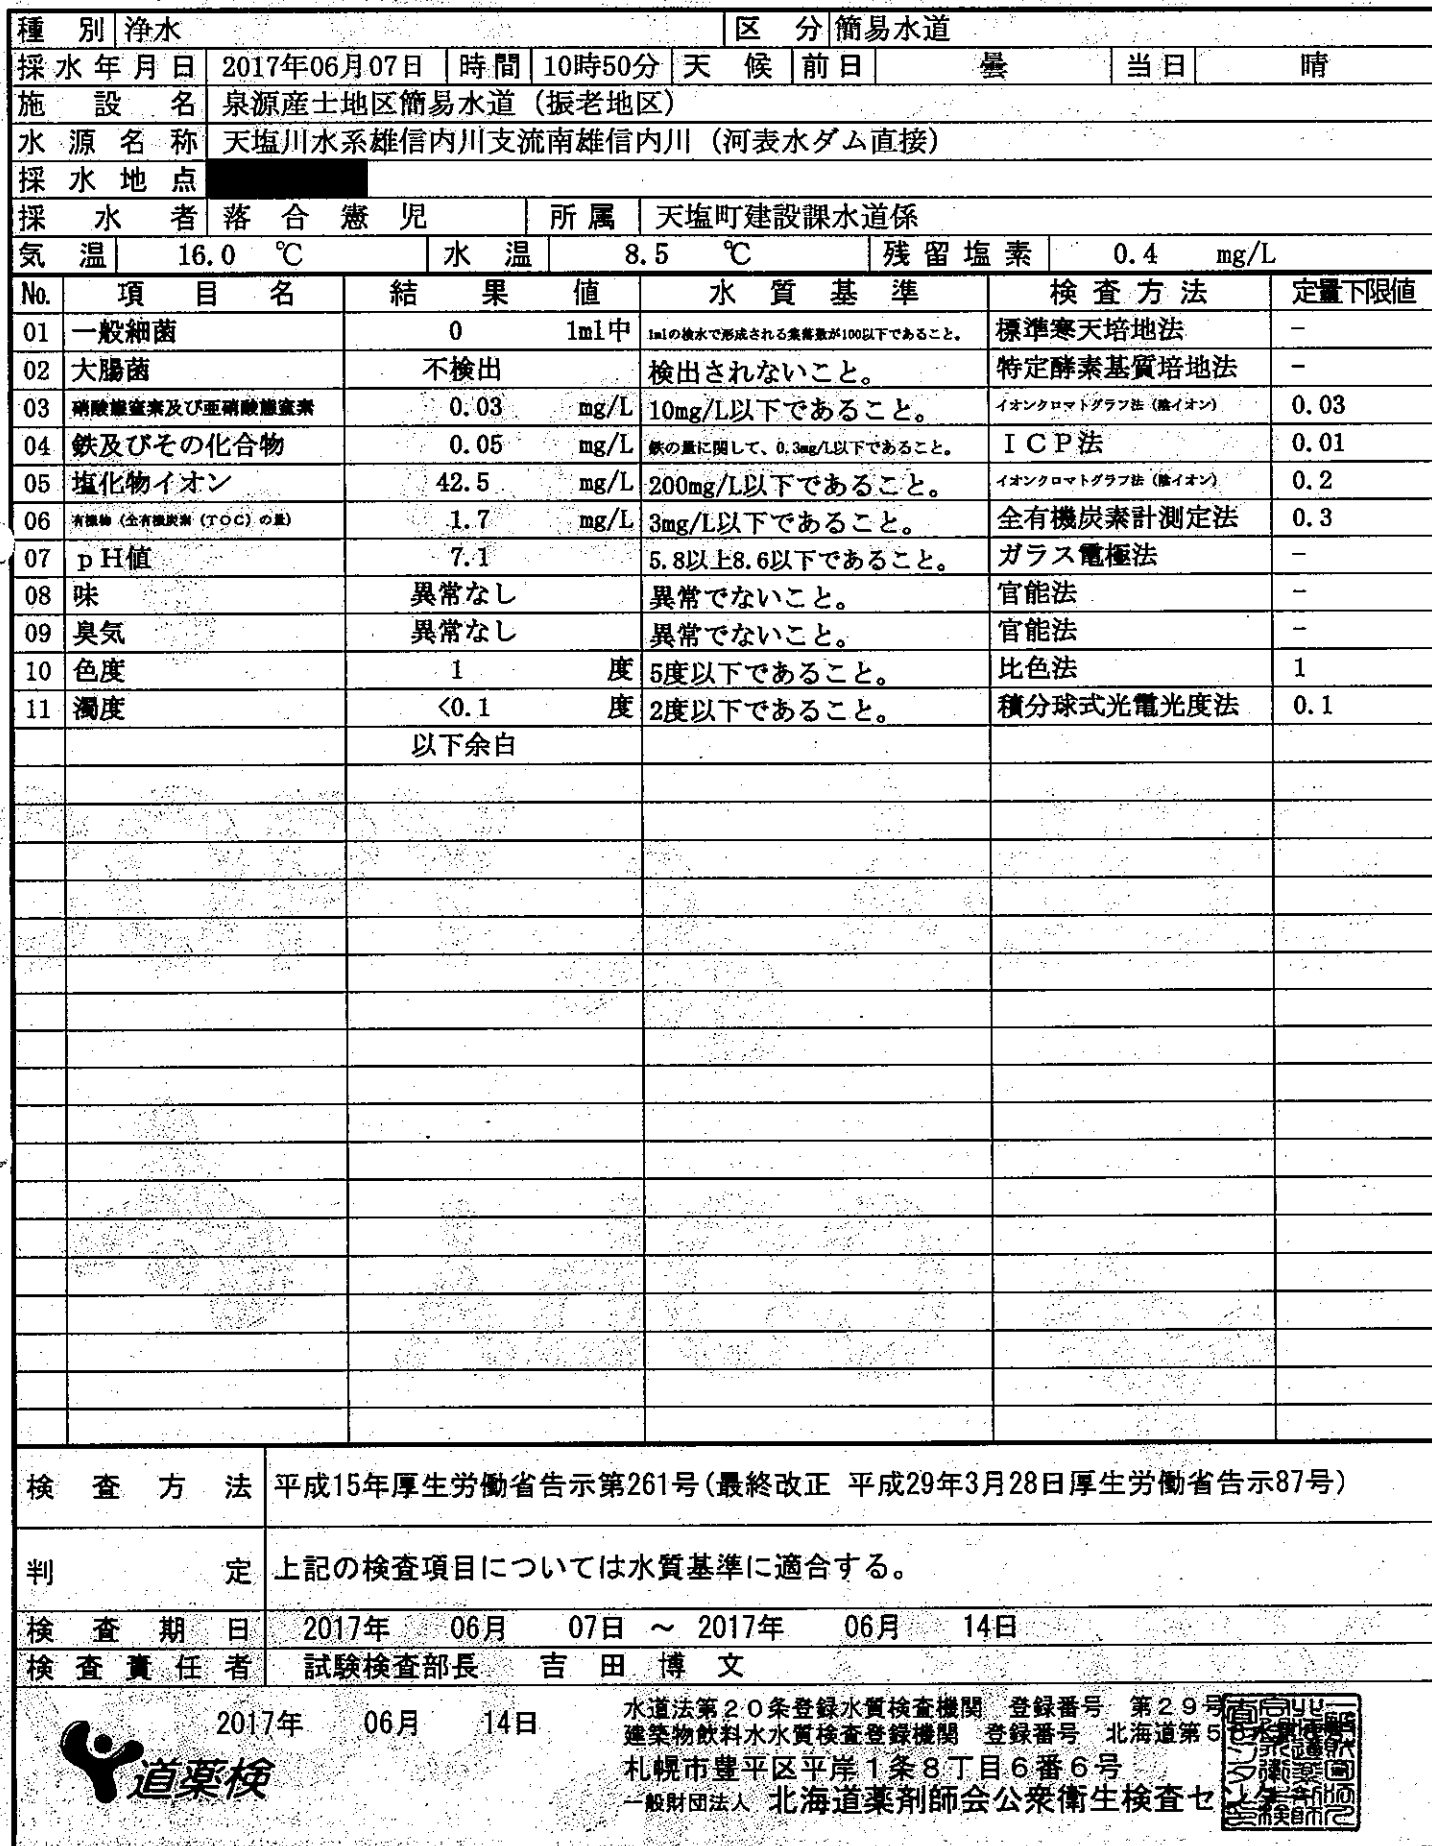 種別 浄水 区分 簡易水道
採水年月日 2017年06月07日 時間 10時50分 天候 前日 曇 当日 晴
施設名 泉源産士地区簡易水道（振老地区）
水源名称 天塩川水系雄信内川支流南雄信内川（河表水ダム直接）
採水地点
採水者 落合憲児 所属 天塩町建設課水道係
気温 16.0 ℃ 水温 8.5 ℃ 残留塩素 0.4 mg/L
No. 項目名 結果値 水質基準 検査方法 定量下限値
01 一般細菌 0 1ml中 1mlの検水で形成される集落数が100以下であること。 標準寒天培地法 −
02 大腸菌 不検出 検出されないこと。 特定酵素基質培地法 −
03 硝酸態窒素及び亜硝酸態窒素 0.03 mg/L 10mg/L以下であること。 イオンクロマトグラフ法（陰イオン） 0.03
04 鉄及びその化合物 0.05 mg/L 鉄の量に関して、0.3mg/L以下であること。 ＩＣＰ法 0.01
05 塩化物イオン 42.5 mg/L 200mg/L以下であること。 イオンクロマトグラフ法（陰イオン） 0.2
06 有機物（全有機炭素（TOC）の量） 1.7 mg/L 3mg/L以下であること。 全有機炭素計測定法 0.3
07 ｐＨ値 7.1 5.8以上8.6以下であること。 ガラス電極法 −
08 味 異常なし 異常でないこと。 官能法 −
09 臭気 異常なし 異常でないこと。 官能法 −
10 色度 1 度 5度以下であること。 比色法 1
11 濁度 <0.1 度 2度以下であること。 積分球式光電光度法 0.1
以下余白
検査方法 平成15年厚生労働省告示第261号(最終改正 平成29年3月28日厚生労働省告示87号)
判定 上記の検査項目については水質基準に適合する。
検査期日 2017年 06月 07日 ～ 2017年 06月 14日
検査責任者 試験検査部長 吉田博文
2017年 06月 14日
道薬検
水道法第２０条登録水質検査機関 登録番号 第２９号
建築物飲料水水質検査登録機関 登録番号 北海道第５
札幌市豊平区平岸１条８丁目６番６号
一般財団法人 北海道薬剤師会公衆衛生検査セン